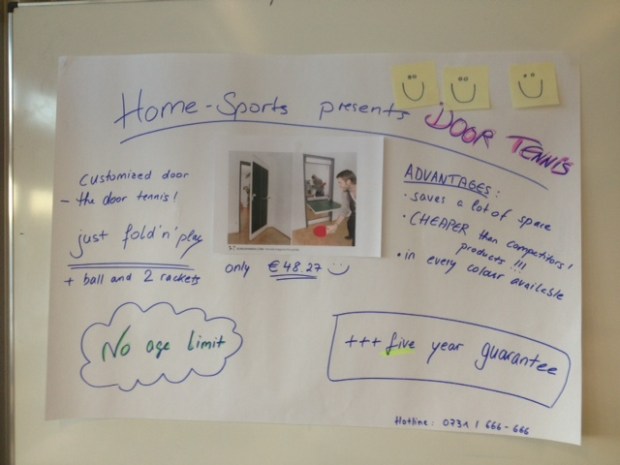 Home-Sports presents DOOR TENNIS
customized door
- the door tennis!
just fold'n'play
+ ball and 2 rackets
only €48.27
ADVANTAGES:
• saves a lot of space
• CHEAPER than competitors'
products !!!
• in every colour available
No age limit
+++ five year guarantee
Hotline: 0731 / 666-666